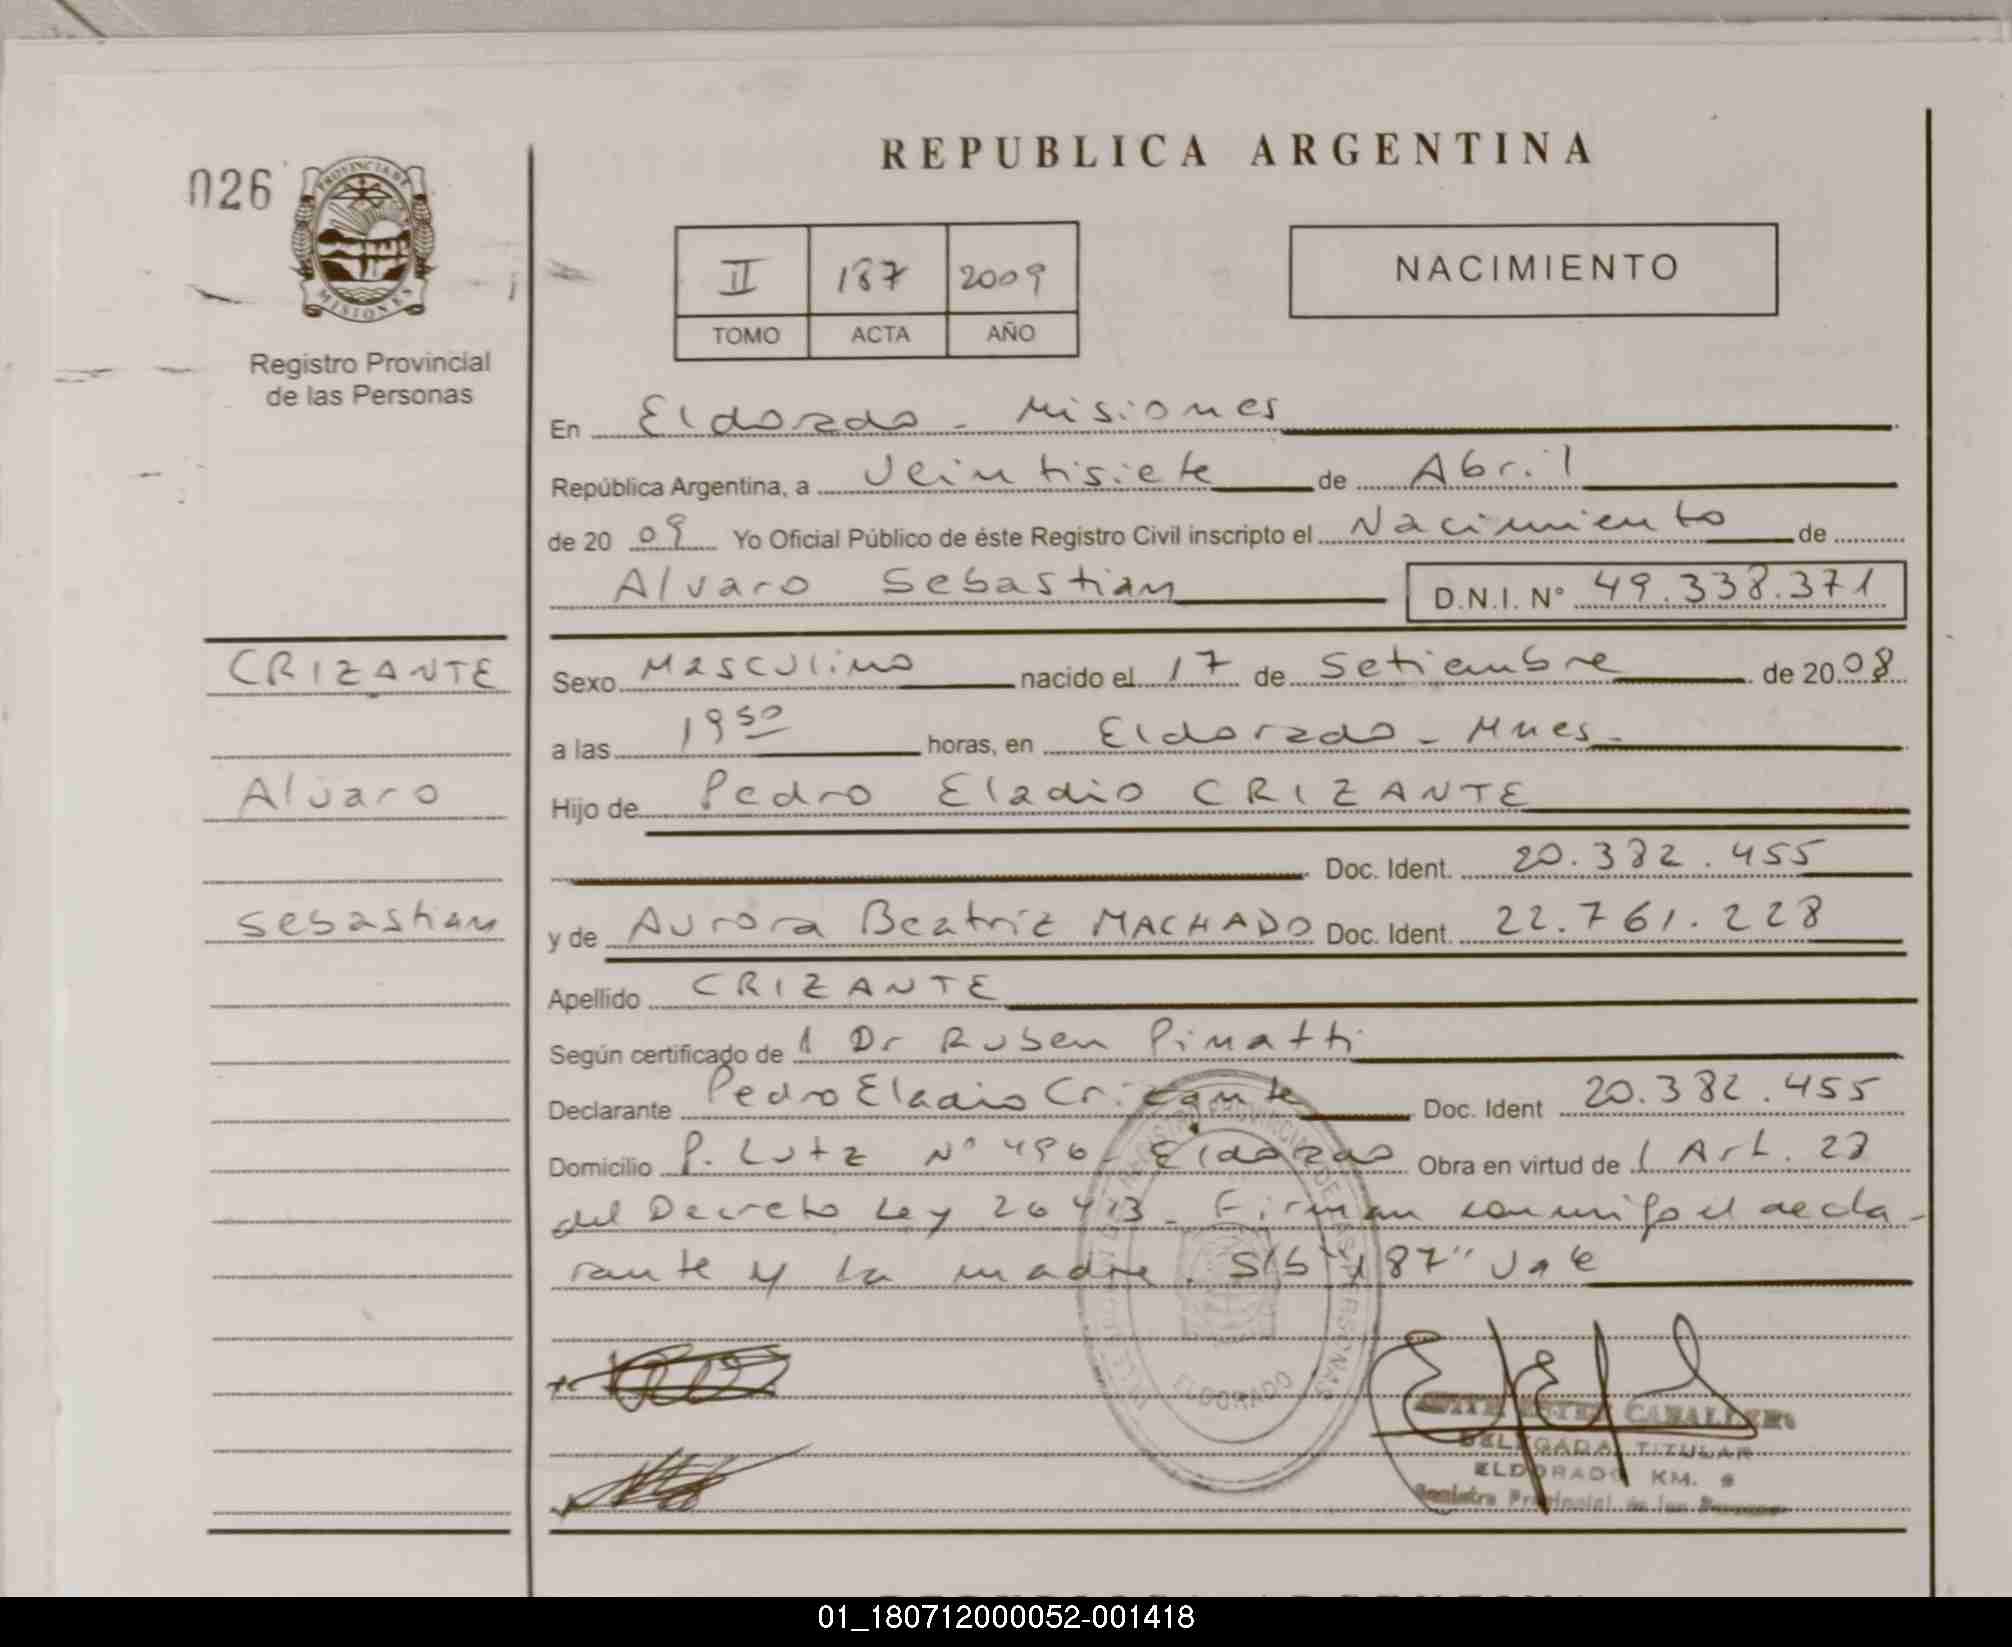 REPUBLICA ARGENTINA
026
PROVINCIA DE
MISIONES
Registro Provincial
de las Personas
II 187 2009
TOMO ACTA AÑO
NACIMIENTO
En Eldorado - Misiones
República Argentina, a Veintisiete de Abril
de 2009 Yo Oficial Público de éste Registro Civil inscripto el Nacimiento de
Alvaro Sebastian D.N.I. N° 49.338.371
CRIZANTE
Alvaro
Sebastian
Sexo Masculino nacido el 17 de Setiembre de 2008
a las 19 50 horas, en Eldorado - Mnes -
Hijo de Pedro Eladio CRIZANTE
Doc. Ident. 20.382.455
y de Aurora Beatriz MACHADO Doc. Ident. 22.761.228
Apellido CRIZANTE
Según certificado de 1 Dr Ruben Pimatti
Declarante Pedro Eladio Crizante Doc. Ident 20.382.455
Domicilio P. Lutz N° 496 - Eldorado Obra en virtud de l Art. 28
del Decreto Ley 20413 - Firman conmigo el decla-
rante y la madre. S/b "187" Vale
ELDORADO
CABALLERO
DELEGADA TITULAR
ELDORADO KM. 9
Registro Provincial de las Personas
01_180712000052-001418